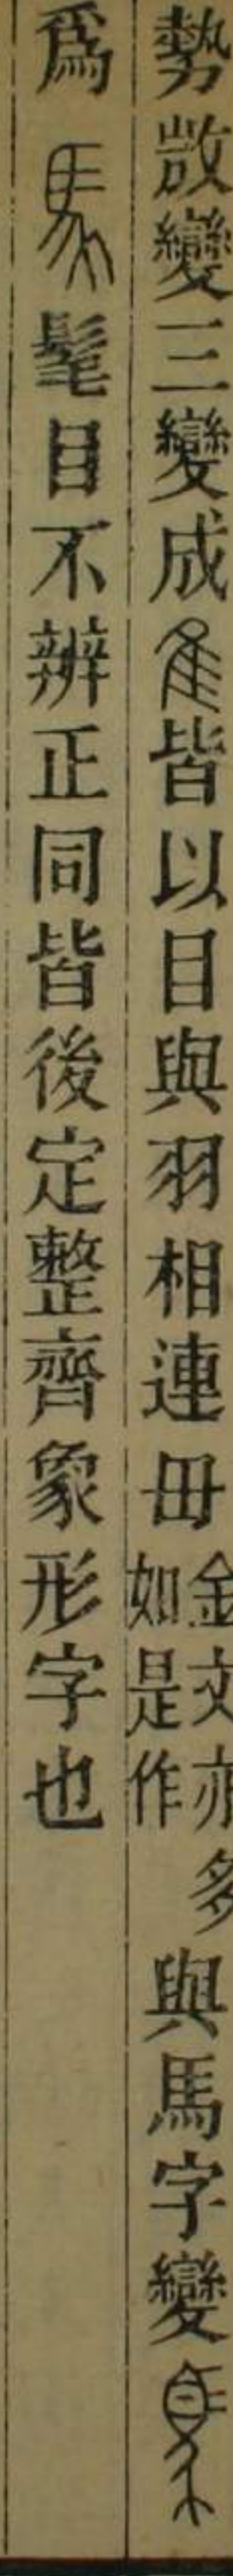 勢𢼸變三變成皆以目與羽相連毌金文亦多如是作與馬字變
爲髦目不辨正同皆後定整齊象形字也